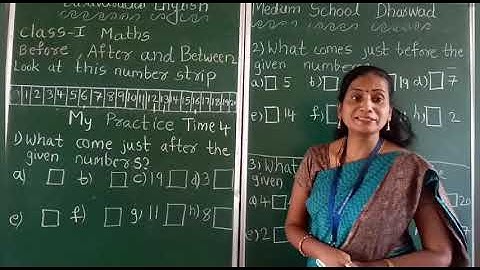 English
Class-I Maths
Before, After and Between
Look at this number strip
1 2 3 4 5 6 7 8 9 10 11 12 13 14 15 16 17 18 19 20
My Practice Time 4
1) What come just after the
given numbers?
a) □ b) □ c) 19 □ d) 3 □
e) □ f) □ g) 11 □ h) 8 □
Medium School Dharwad
2) What comes just before the
given numbers
a) □ 5 b) □ 19 d) □ 7
e) □ 14 f) h) □ 2
3) What
given
a) 4 20
e) 2